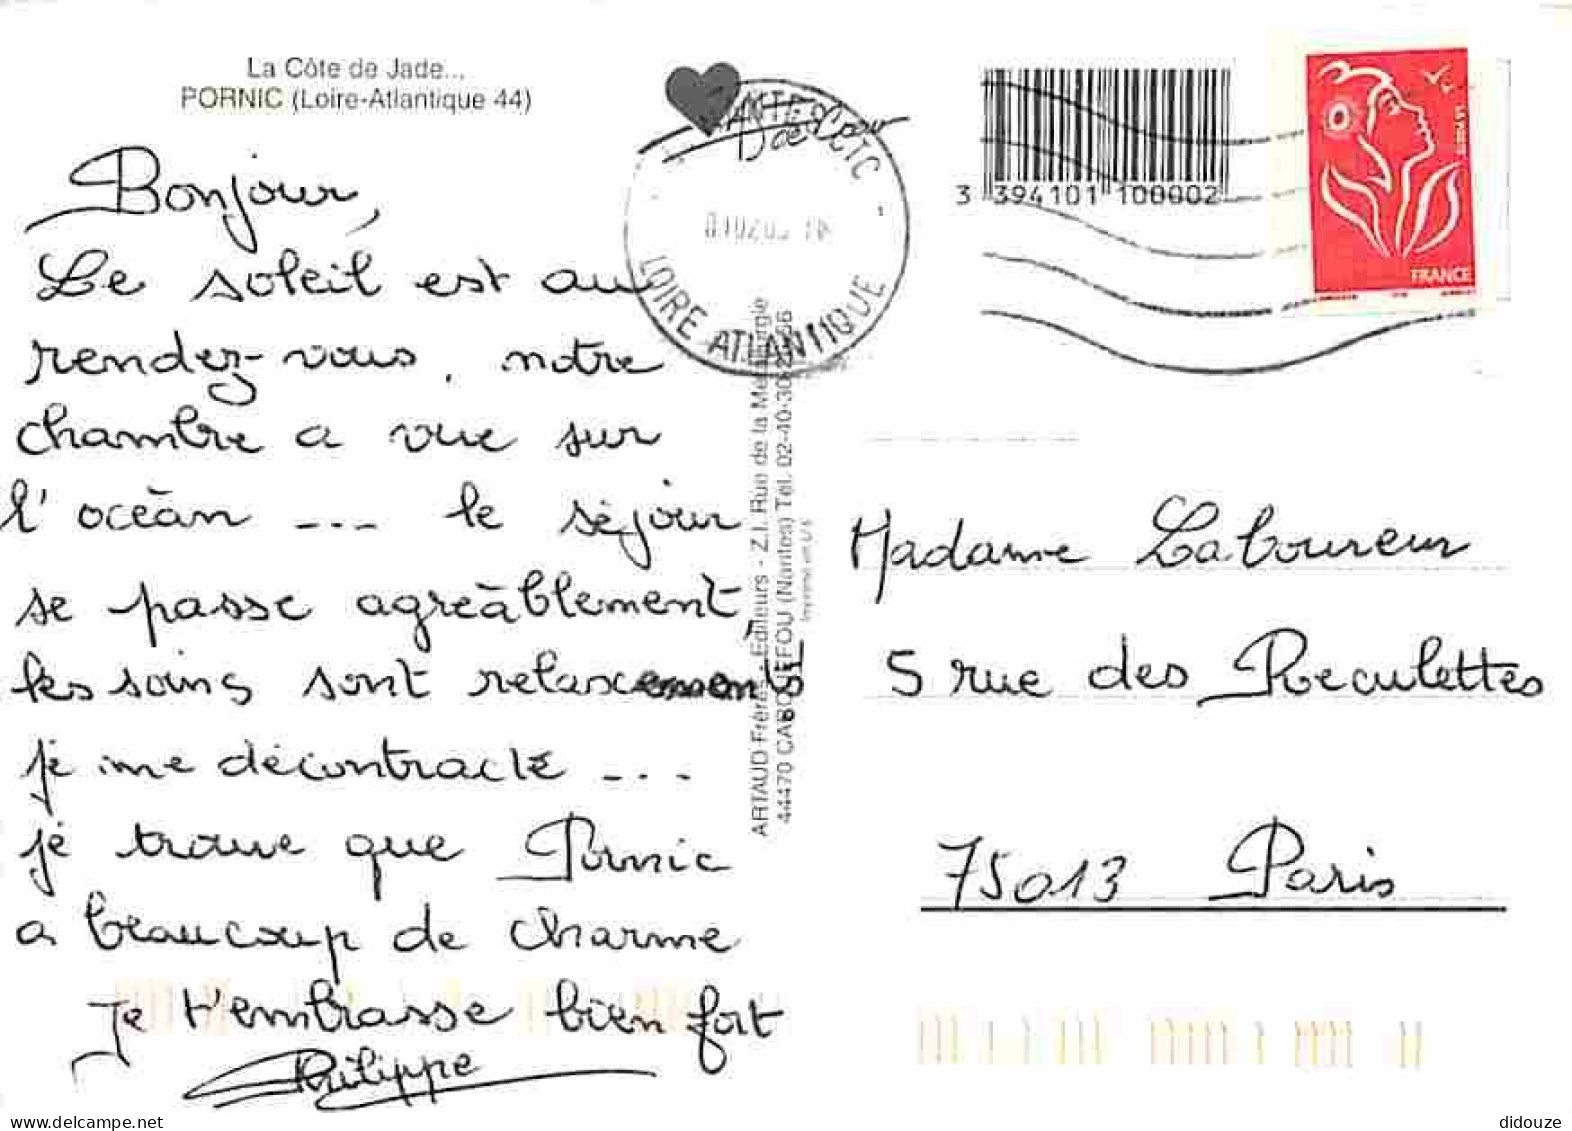 La Côte de Jade...
PORNIC (Loire-Atlantique 44)
Bonjour,
Le soleil est au
rendez-vous, notre
chambre a vue sur
l'océan --- le séjour
se passe agréablement,
les soins sont relaxements
je me décontracte ---
je trouve que Pornic
a beaucoup de charme
Je t'embrasse bien fort
Philippe
ARTAUD Frères - Editeurs - Z.I. Rue de la Métallurgie
44470 CARQUEFOU (Nantes) Tél. 02-40-30-
Imprimé en U.E.
NANTES CTC
LOIRE ATLANTIQUE
de Cœur
3 394101 100002
LA POSTE
FRANCE
Madame Laboureur
5 rue des Reculettes
75013 Paris
didouze